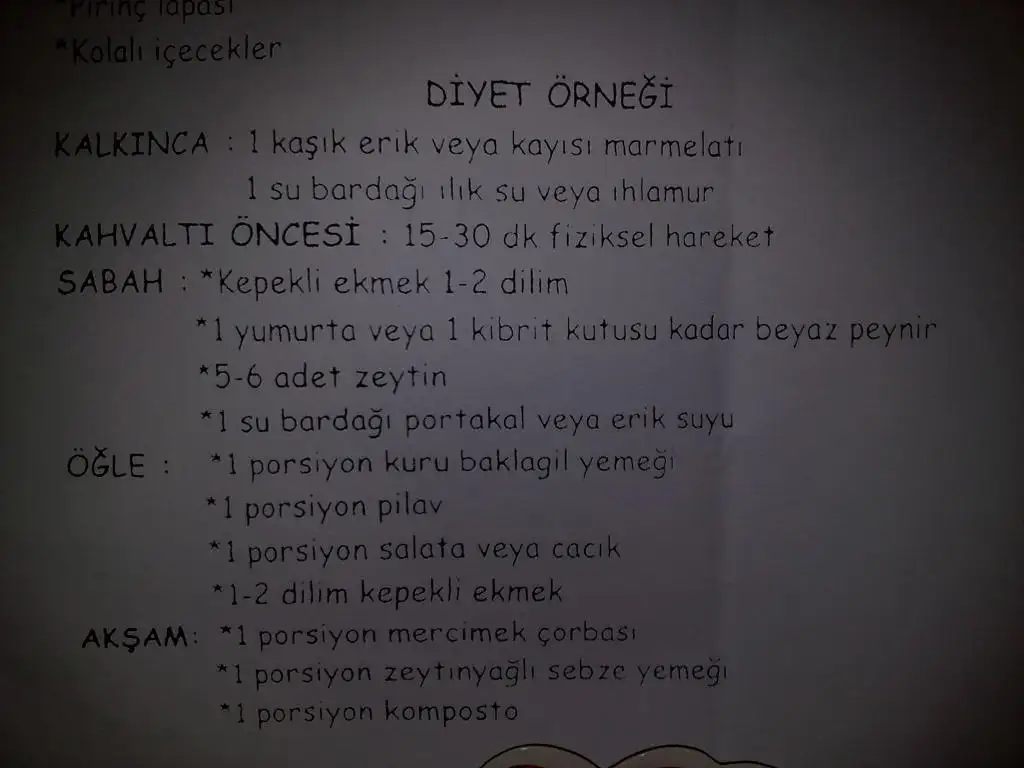 *Pirinç lapası
*Kolalı içecekler
DİYET ÖRNEĞİ
KALKINCA : 1 kaşık erik veya kayısı marmelatı
1 su bardağı ılık su veya ıhlamur
KAHVALTI ÖNCESİ : 15-30 dk fiziksel hareket
SABAH : *Kepekli ekmek 1-2 dilim
*1 yumurta veya 1 kibrit kutusu kadar beyaz peynir
*5-6 adet zeytin
*1 su bardağı portakal veya erik suyu
ÖĞLE : *1 porsiyon kuru baklagil yemeği
*1 porsiyon pilav
*1 porsiyon salata veya cacık
*1-2 dilim kepekli ekmek
AKŞAM: *1 porsiyon mercimek çorbası
*1 porsiyon zeytınyağlı sebze yemeği
*1 porsiyon komposto